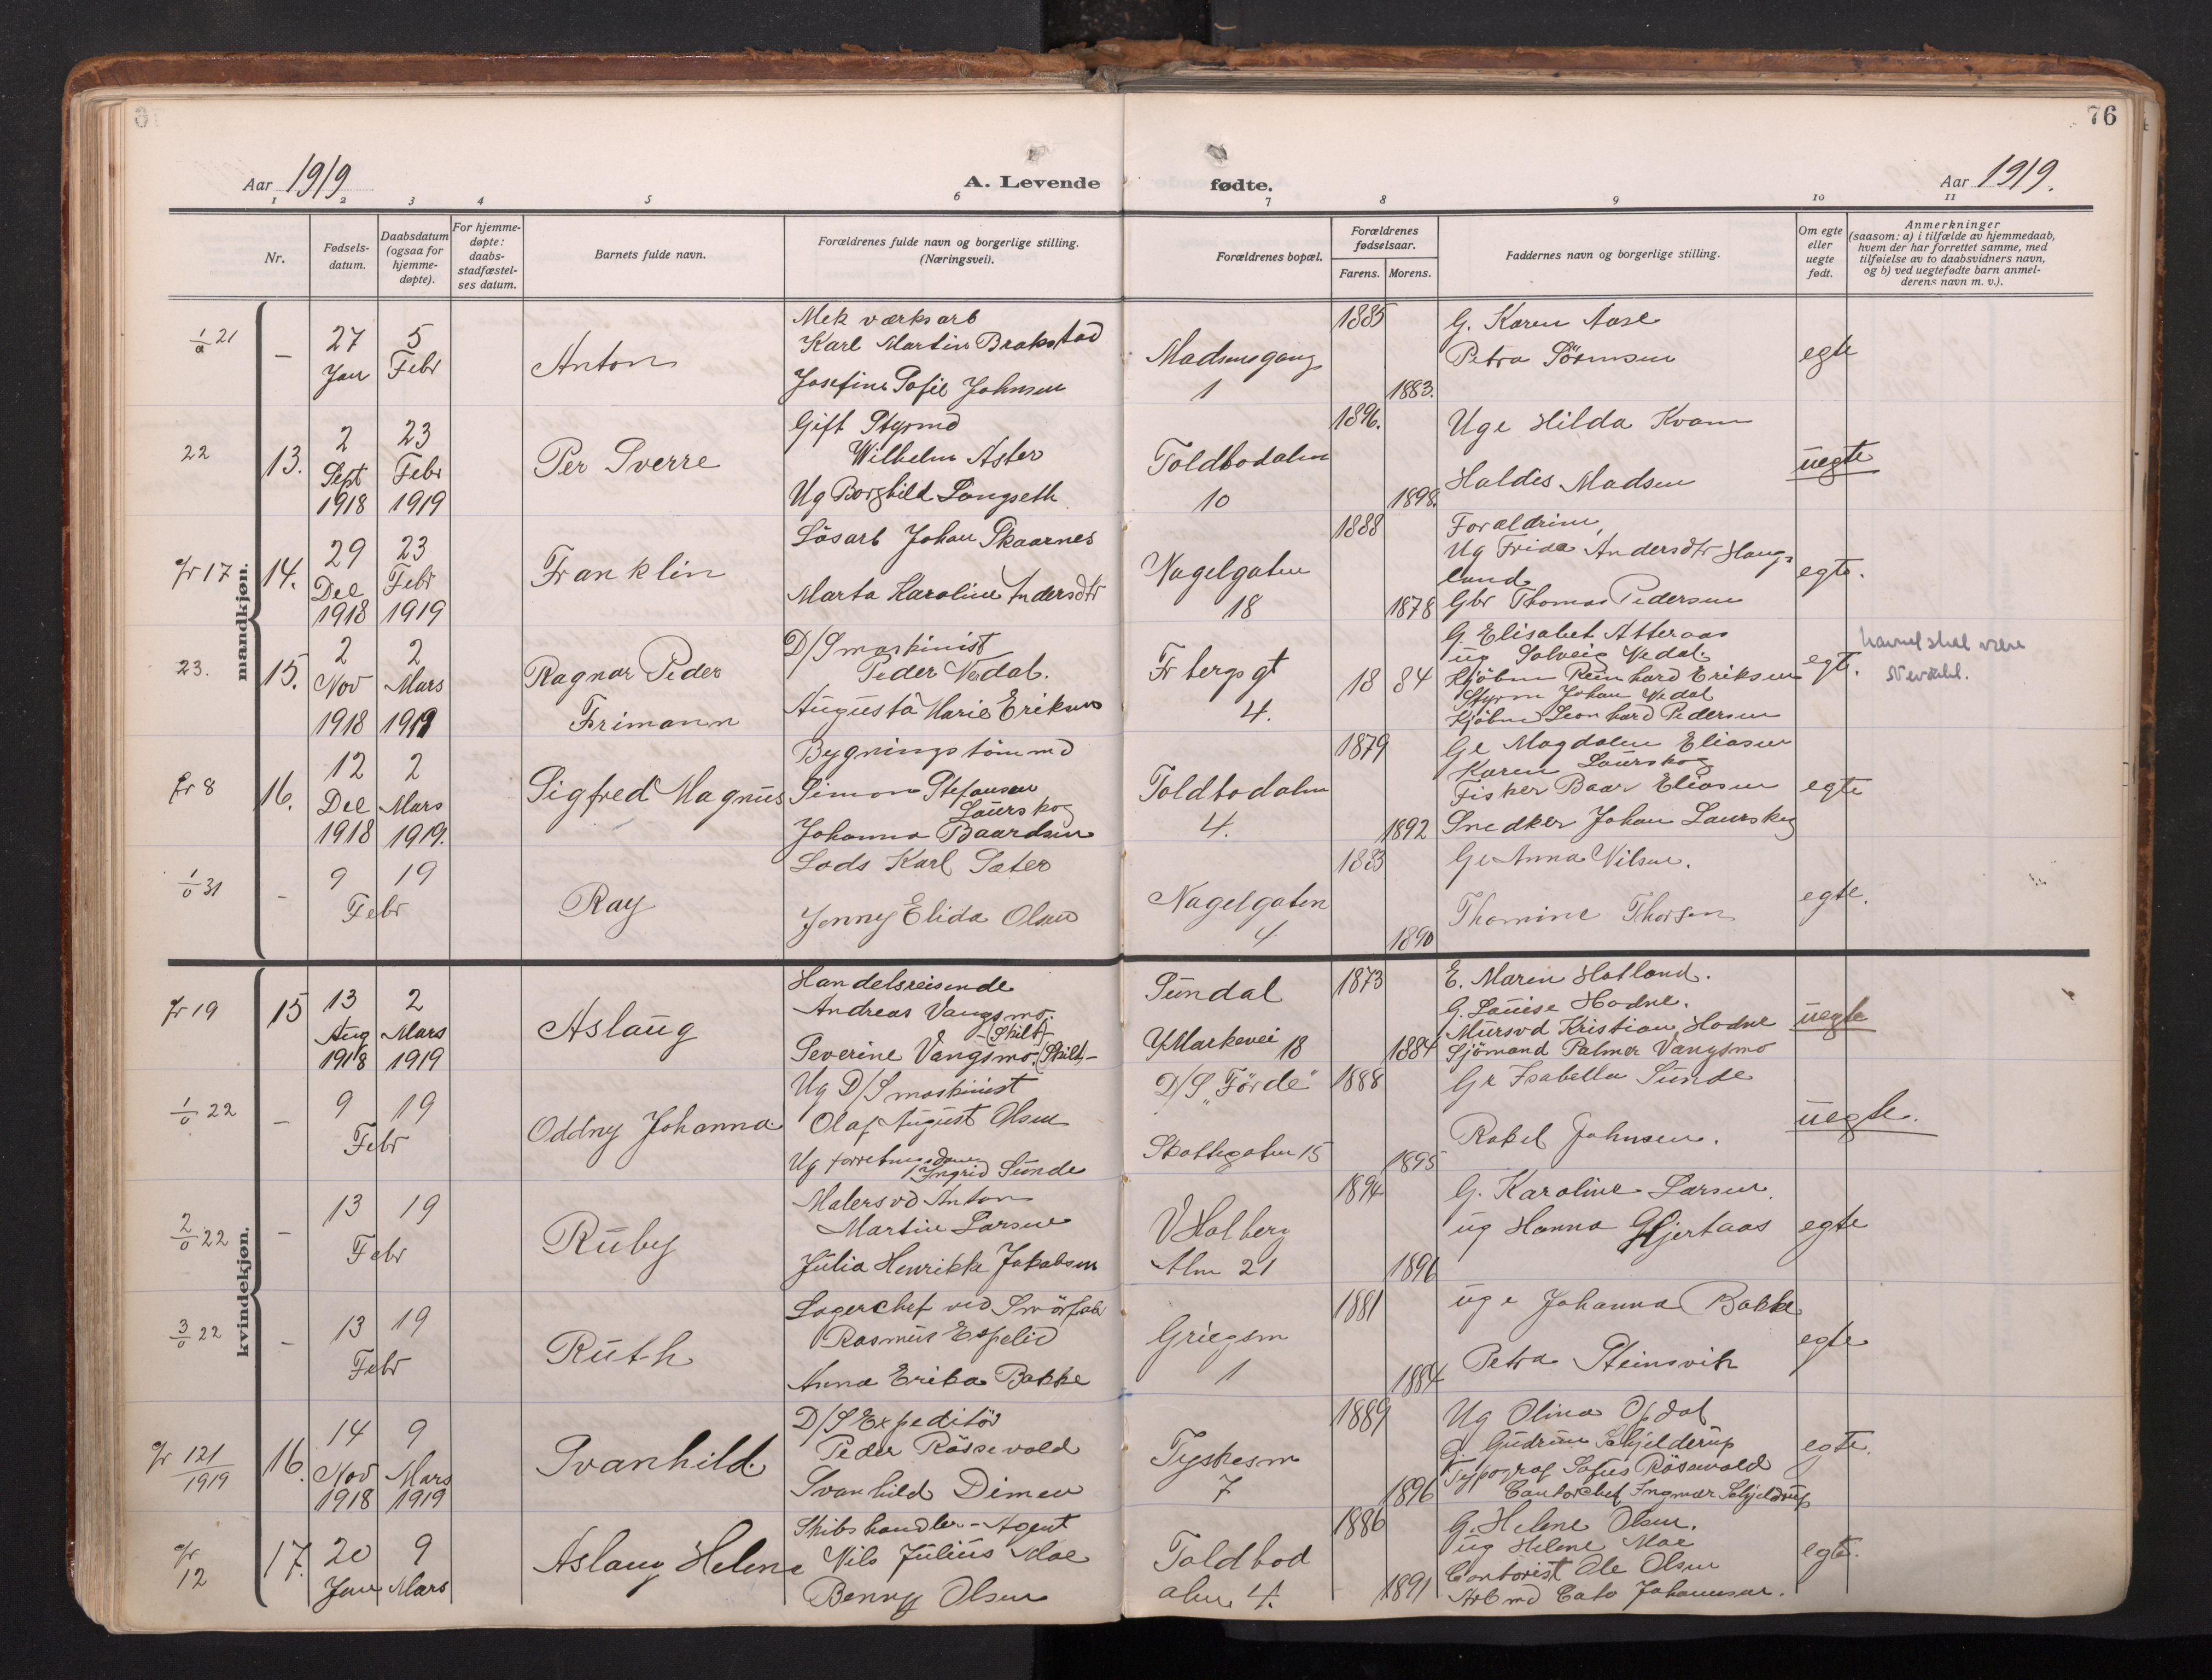 76
Aar 1919
A. Levende
fødte.
Aar 1919.
1 2 3 4 5 6 7 8 9 10 11
Nr.
Fødsels-
datum.
Daabsdatum
(ogsaa for
hjemme-
døpte).
For hjemme-
døpte:
daabs-
stadfæstel-
ses datum.
Barnets fulde navn.
Forældrenes fulde navn og borgerlige stilling.
(Næringsvei).
Forældrenes bopæl.
Forældrenes
fødselsaar.
Farens. Morens.
Faddernes navn og borgerlige stilling.
Om egte
eller
uegte
født.
Anmerkninger
(saasom: a) i tilfælde av hjemmedaab,
hvem der har forrettet samme, med
tilføielse av to daabsvidners navn,
og b) ved uegtefødte barn anmel-
derens navn m. v.).
mandkjøn.
21
–
27
Jan
5
Febr
Anton
Mek værksarb
Karl Martin Brakstad
Josefine Sofie Johnsen
Madsensgang
1
1885
1883.
G. Karen Aase
Petra Sörensen
egte
22
13.
2
Sept
1918
23
Febr
1919
Per Sverre
Gift Styrmd
Wilhelm Aster
Ug Borghild Langseth
Toldbodalm
10
1896.
1898.
Uge Hilda Kvam
Haldis Madsen
uegte
fr 17
14.
29
Dec
1918
23
Febr
1919
Franklin
Lösarb Johan Skaarnes
Marta Karoline Andersdtr
Nagelgaten
18
1888
1878
Forældrene,
Ug Frida Andersdtr Haug-
land
Gbr Thomas Pedersen
egte.
23.
15.
2
Nov
1918
2
Mars
1919
Ragnar Peder
Frimann
D/S maskinist
Peder Vedal.
Augusta Marie Eriksen
Fr bergs gt
4.
18 84
G. Elisabet Atteraas
ug Solveig Vedal
Kjöbm Reinhard Eriksen
Styrm Johan Vedal
Kjöbm Leonhard Pedersen
egte.
navnet skal være
fr 8
16.
12
Dec
1918
2
Mars
1919.
Sigfred Magnus
Bygningstömmd
Simon Stefansen
Laurskog
Johanna Baardsen
Toldbodalm
4.
1879
1892
Ge Magdalen Eliasen
Karen Laurskog
Fisker Baar Eliasen
Snedker Johan Laurskog
egte
1/0 31
–
9 19
Febr
Ray
Lods Karl Sæter
Jenny Elida Olsen
Nagelgaten
4
1883
1890
Ge Anna Nilsen.
Thomine Thorsen
egte.
kvindekjøn.
fr 19
15
13
Aug
1918
2
Mars
1919
Aslaug
Handelsreisende
Andreas Vangsmo.
(Skilt)
Severine Vangsmo. (Skilt)–
Sundal
Y Markevei 18
1873
1884
E. Maren Hatland.
G. Louise Hodne.
Mursvd Kristian Hodne
Sjömand Palmer Vangsmo
uegte
1/0 22
–
9 19
Febr
Oddny Johanna
Ug D/S maskinist
Olaf August Olsen
Ug forretningsdame
Ingrid Sunde
D/S "Förde"
Skottegaten 15
1888
1895
Ge Isabella Sunde
Rakel Johnsen.
uegte.
2/0 22
–
13 19
Febr
Ruby
Malersvd Anton
Martin Larsen
Julia Henrikke Jakobsen
V Holberg
Alm 21
1894
1896
G. Karoline Larsen.
ug Hanna Gjertaas
egte
3/0 22
–
13 19
Febr
Ruth
Lagerchef ved Smörfabr
Rasmus Espelid
Anna Erika Bakke
Griegsm
1
1881
1884
ug e Johanna Bakke
Petra Steinsvik
egte
fr 121
1919
16.
14
Nov
1918
9
Mars
1919
Svanhild.
D/S Expeditör
Peder Rössevold
Svanhild Dimen
Tyskesm
7
1889
1896
Ug Olina Opdal
G. Gudrun Schjelderup
Typograf Sofus Rösevold
Contorchef Ingmar Schjeldrup
egte.
fr
12
17.
20
Jan
9
Mars
Aslaug Helene
Skibshandler-Agent
Nils Julius Moe
Benny Olsen
Toldbod
alm 4.
1886
1891
G. Helene Olsen.
ug Helene Moe
Contorist Ole Olsen
Arbmd Cato Johannesen.
egte.